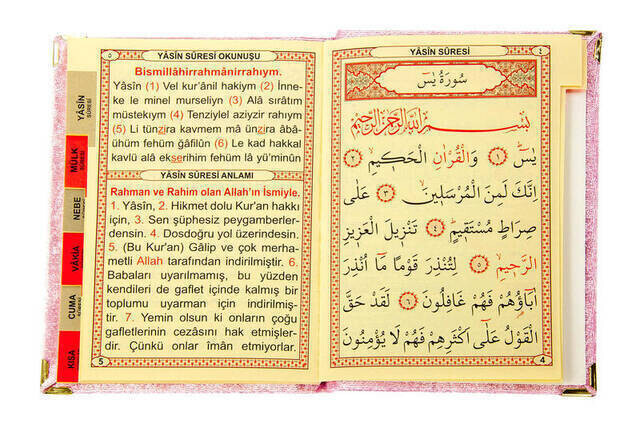 YÂSİN SÛRESİ
٤
سُورَةُ يٰسٓ
بِسْمِ اللّٰهِ الرَّحْمٰنِ الرَّحِيمِ
يٰسٓ ﴿١﴾ وَالْقُرْاٰنِ الْحَكِيمِ ﴿٢﴾
اِنَّكَ لَمِنَ الْمُرْسَلِينَ ﴿٣﴾ عَلٰى
صِرَاطٍ مُسْتَقِيمٍ ﴿٤﴾ تَنْزِيلَ الْعَزِيزِ
الرَّحِيمِ ﴿٥﴾ لِتُنْذِرَ قَوْمًا مَٓا اُنْذِرَ
اٰبَٓاؤُهُمْ فَهُمْ غَافِلُونَ ﴿٦﴾ لَقَدْ حَقَّ
الْقَوْلُ عَلٰٓى اَكْثَرِهِمْ فَهُمْ لَا يُؤْمِنُونَ
4
٥
YÂSİN SÛRESİ OKUNUŞU
Bismillâhirrahmânirrahıym.
Yâsîn (1) Vel kur'ânil hakiym (2) İnne-
ke le minel murseliyn (3) Alâ sırâtım
müstekıym (4) Tenziylel aziyzir rahıym
(5) Li tünzira kavmem mâ ünzira âbâ-
ühüm fehüm gâfilûn (6) Le kad hakkal
kavlü alâ ekserihim fehüm lâ yü'minûn
YÂSİN SÛRESİ ANLAMI
Rahman ve Rahim olan Allah'ın İsmiyle.
1. Yâsîn, 2. Hikmet dolu Kur'an hakkı
için, 3. Sen şüphesiz peygamberler-
densin. 4. Dosdoğru yol üzerindesin.
5. (Bu Kur'an) Gâlip ve çok merha-
metli Allah tarafından indirilmiştir. 6.
Babaları uyarılmamış, bu yüzden
kendileri de gaflet içinde kalmış bir
toplumu uyarman için indirilmiş-
tir. 7. Yemin olsun ki onların çoğu
gafletlerinin cezasını hak etmişler-
dir. Çünkü onlar îmân etmiyorlar.
5
YÂSİN
SÛRESİ
MÜLK
SÛRESİ
NEBE
VÂKIA
CUMA
KISA